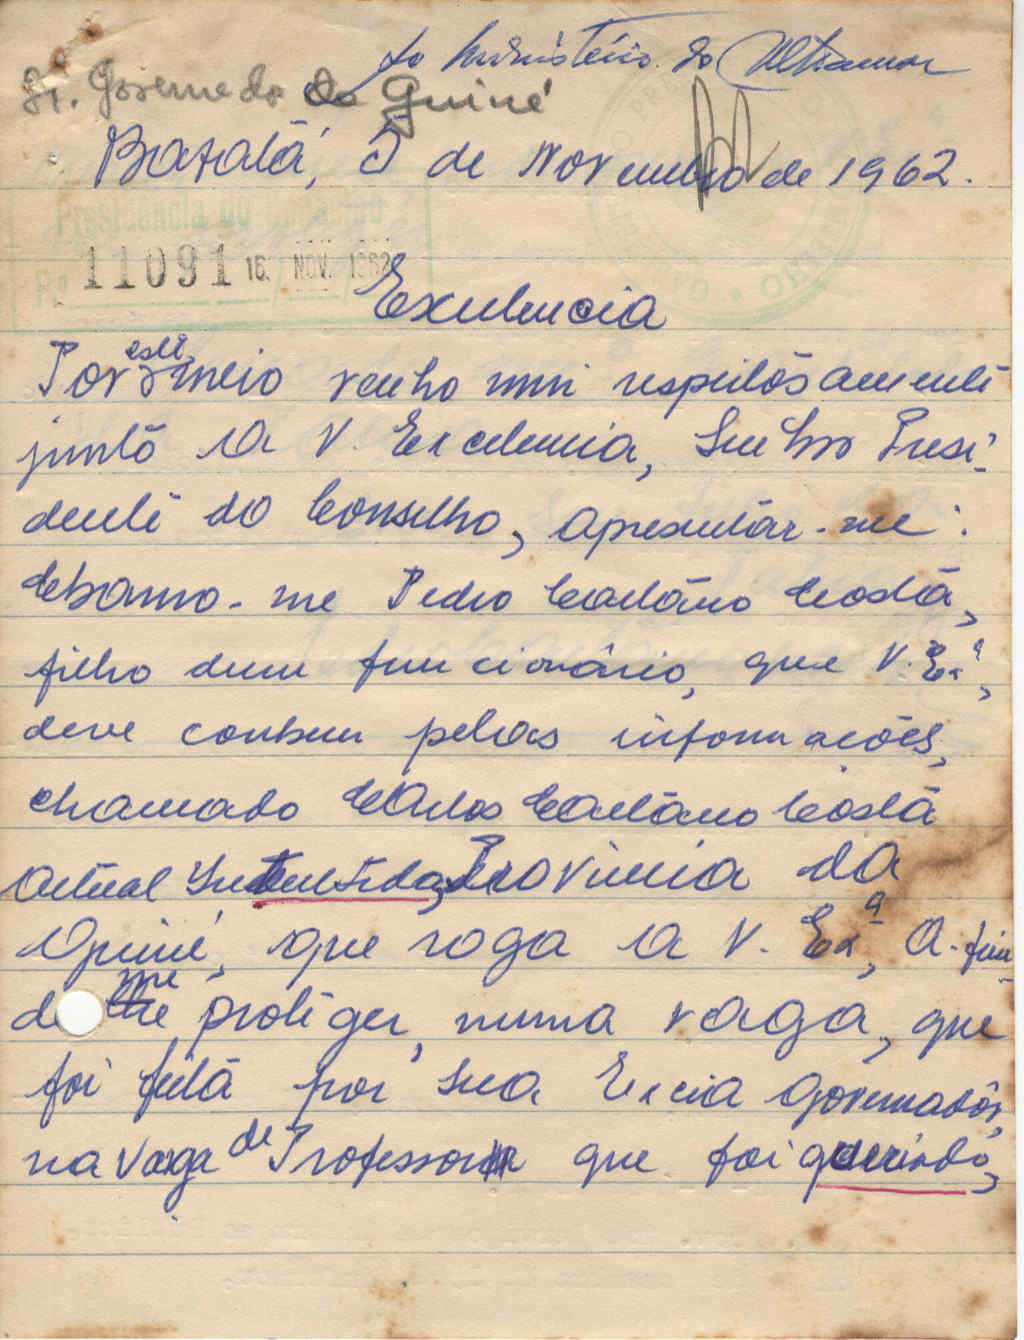 Ao Ministério do Ultramar
Sr. Governador da Guiné
Bafatá, 5 de Novembro de 1962.
Presidência do Conselho
11091 16. NOV. 1962
Excelencia
Por este meio venho mui respeitosamente
junto a V. Excelencia, Senhor Presi-
dente do Conselho, apresentar-me:
Chamo-me Pedro Caetano Costa,
filho dum funcionário, que V. Exª,
deve conhecer pelas informações,
chamado Carlos Caetano Costa
actual Província da
Guiné, que roga a V. Exª, a-fim
de me proteger, numa vaga, que
foi feita por Sua Excia Governador,
na vaga de Professor que foi querido,